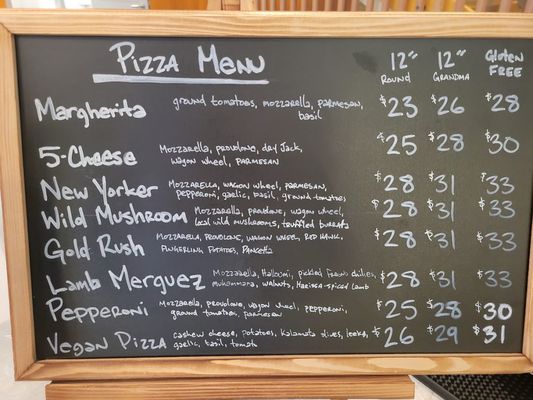 Pizza Menu
12" Round 12" Grandma Gluten Free
Margherita ground tomatoes, mozzarella, parmesan, $23 $26 $28
basil
5-Cheese Mozzarella, provolone, dry Jack, $25 $28 $30
wagon wheel, parmesan
New Yorker Mozzarella, wagon wheel, parmesan, $28 $31 $33
pepperoni, garlic, basil, ground tomatoes
Wild Mushroom Mozzarella, provolone, wagon wheel, $28 $31 $33
local wild mushrooms, truffled burrata
Gold Rush Mozzarella, provolone, wagon wheel, red hawk, $28 $31 $33
fingerling potatoes, pancetta
Lamb Merguez Mozzarella, Halloumi, pickled fresno chilies, $28 $31 $33
muhammara, walnuts, Harissa-spiced lamb
Pepperoni Mozzarella, provolone, wagon wheel, pepperoni, $25 $28 $30
ground tomatoes, parmesan
Vegan Pizza cashew cheese, potatoes, kalamata olives, leeks, $26 $29 $31
garlic, basil, tomato